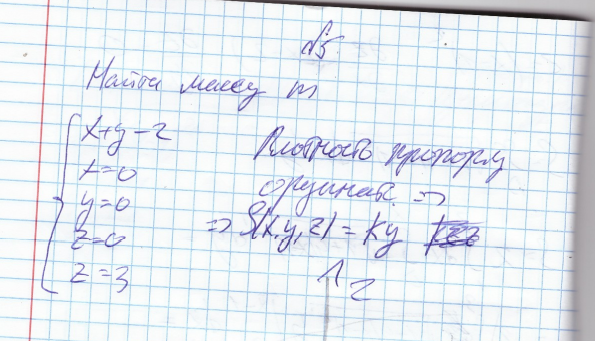 №5
Найти массу m
x+y=2
x=0
y=0
z=0
z=3
Плотность пропорц
ординате ⇒
⇒ S(x,y,z) = Ky